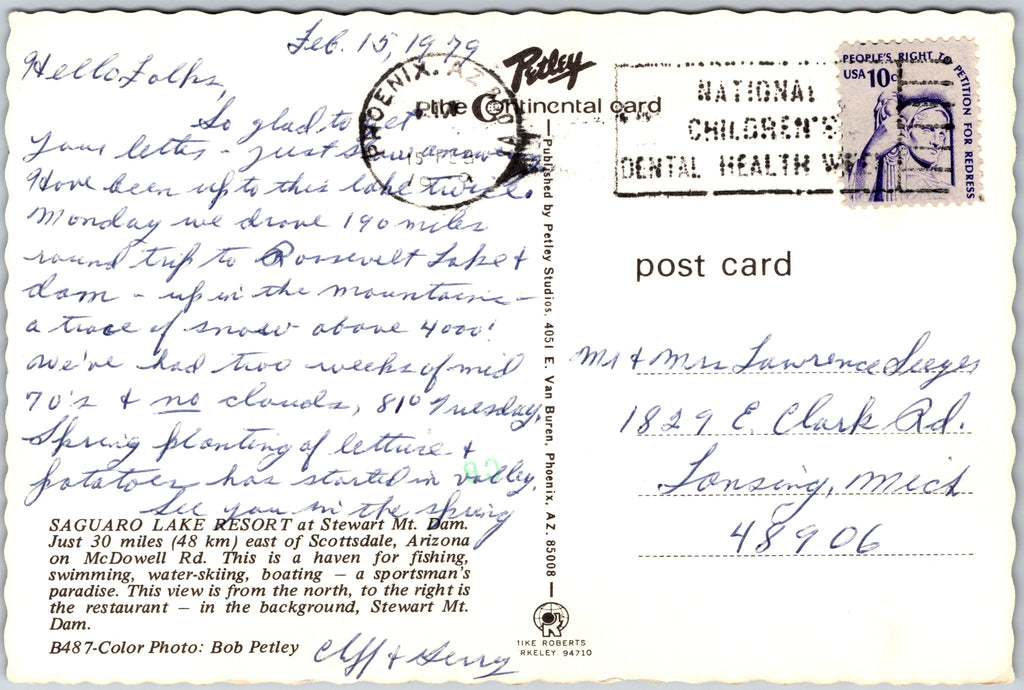 Feb. 15, 1979
Hello Folks,
So glad to get
your letter - just
Have been up to this lake twice.
Monday we drove 190 miles
round trip to Roosevelt Lake &
dam - up in the mountains -
a trace of snow above 4000'
we've had two weeks of mid
70's & no clouds, 81° Tuesday.
Spring planting of lettuce &
potatoes has started in valley.
See you in the spring
Cliff & Gerry
SAGUARO LAKE RESORT at Stewart Mt. Dam.
Just 30 miles (48 km) east of Scottsdale, Arizona
on McDowell Rd. This is a haven for fishing,
swimming, water-skiing, boating — a sportsman's
paradise. This view is from the north, to the right is
the restaurant — in the background, Stewart Mt.
Dam.
B487-Color Photo: Bob Petley
Petley
the Continental card
PHOENIX, AZ
NATIONAL
CHILDREN'S
DENTAL HEALTH WEEK
PEOPLE'S RIGHT TO PETITION FOR REDRESS
USA 10c
Published by Petley Studios, 4051 E. Van Buren, Phoenix, AZ. 85008
post card
Mr & Mrs Lawrence Seeges
1829 E. Clark Rd.
Lansing, Mich
48906
92
MIKE ROBERTS
BERKELEY 94710